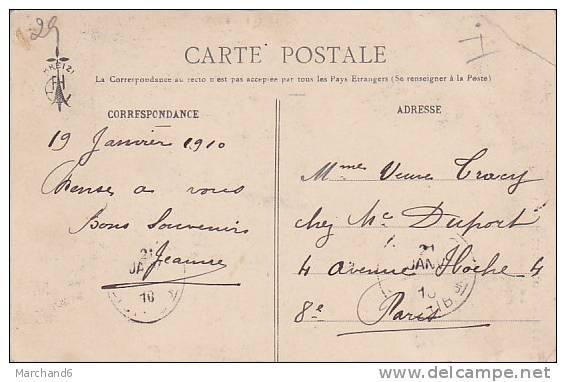 29
CARTE POSTALE
La Correspondance au recto n'est pas acceptée par tous les Pays Etrangers (Se renseigner à la Poste)
CORRESPONDANCE
ADRESSE
19 Janvier 1910
Pense a vous
Bons Souvenirs
Jeanne
21
JANV
10
Mmes Veuve Tracy
chez Mc Duport
4 avenue Hoche 4
8e Paris
21
JANV
10
Marchand6
www.delcampe.net